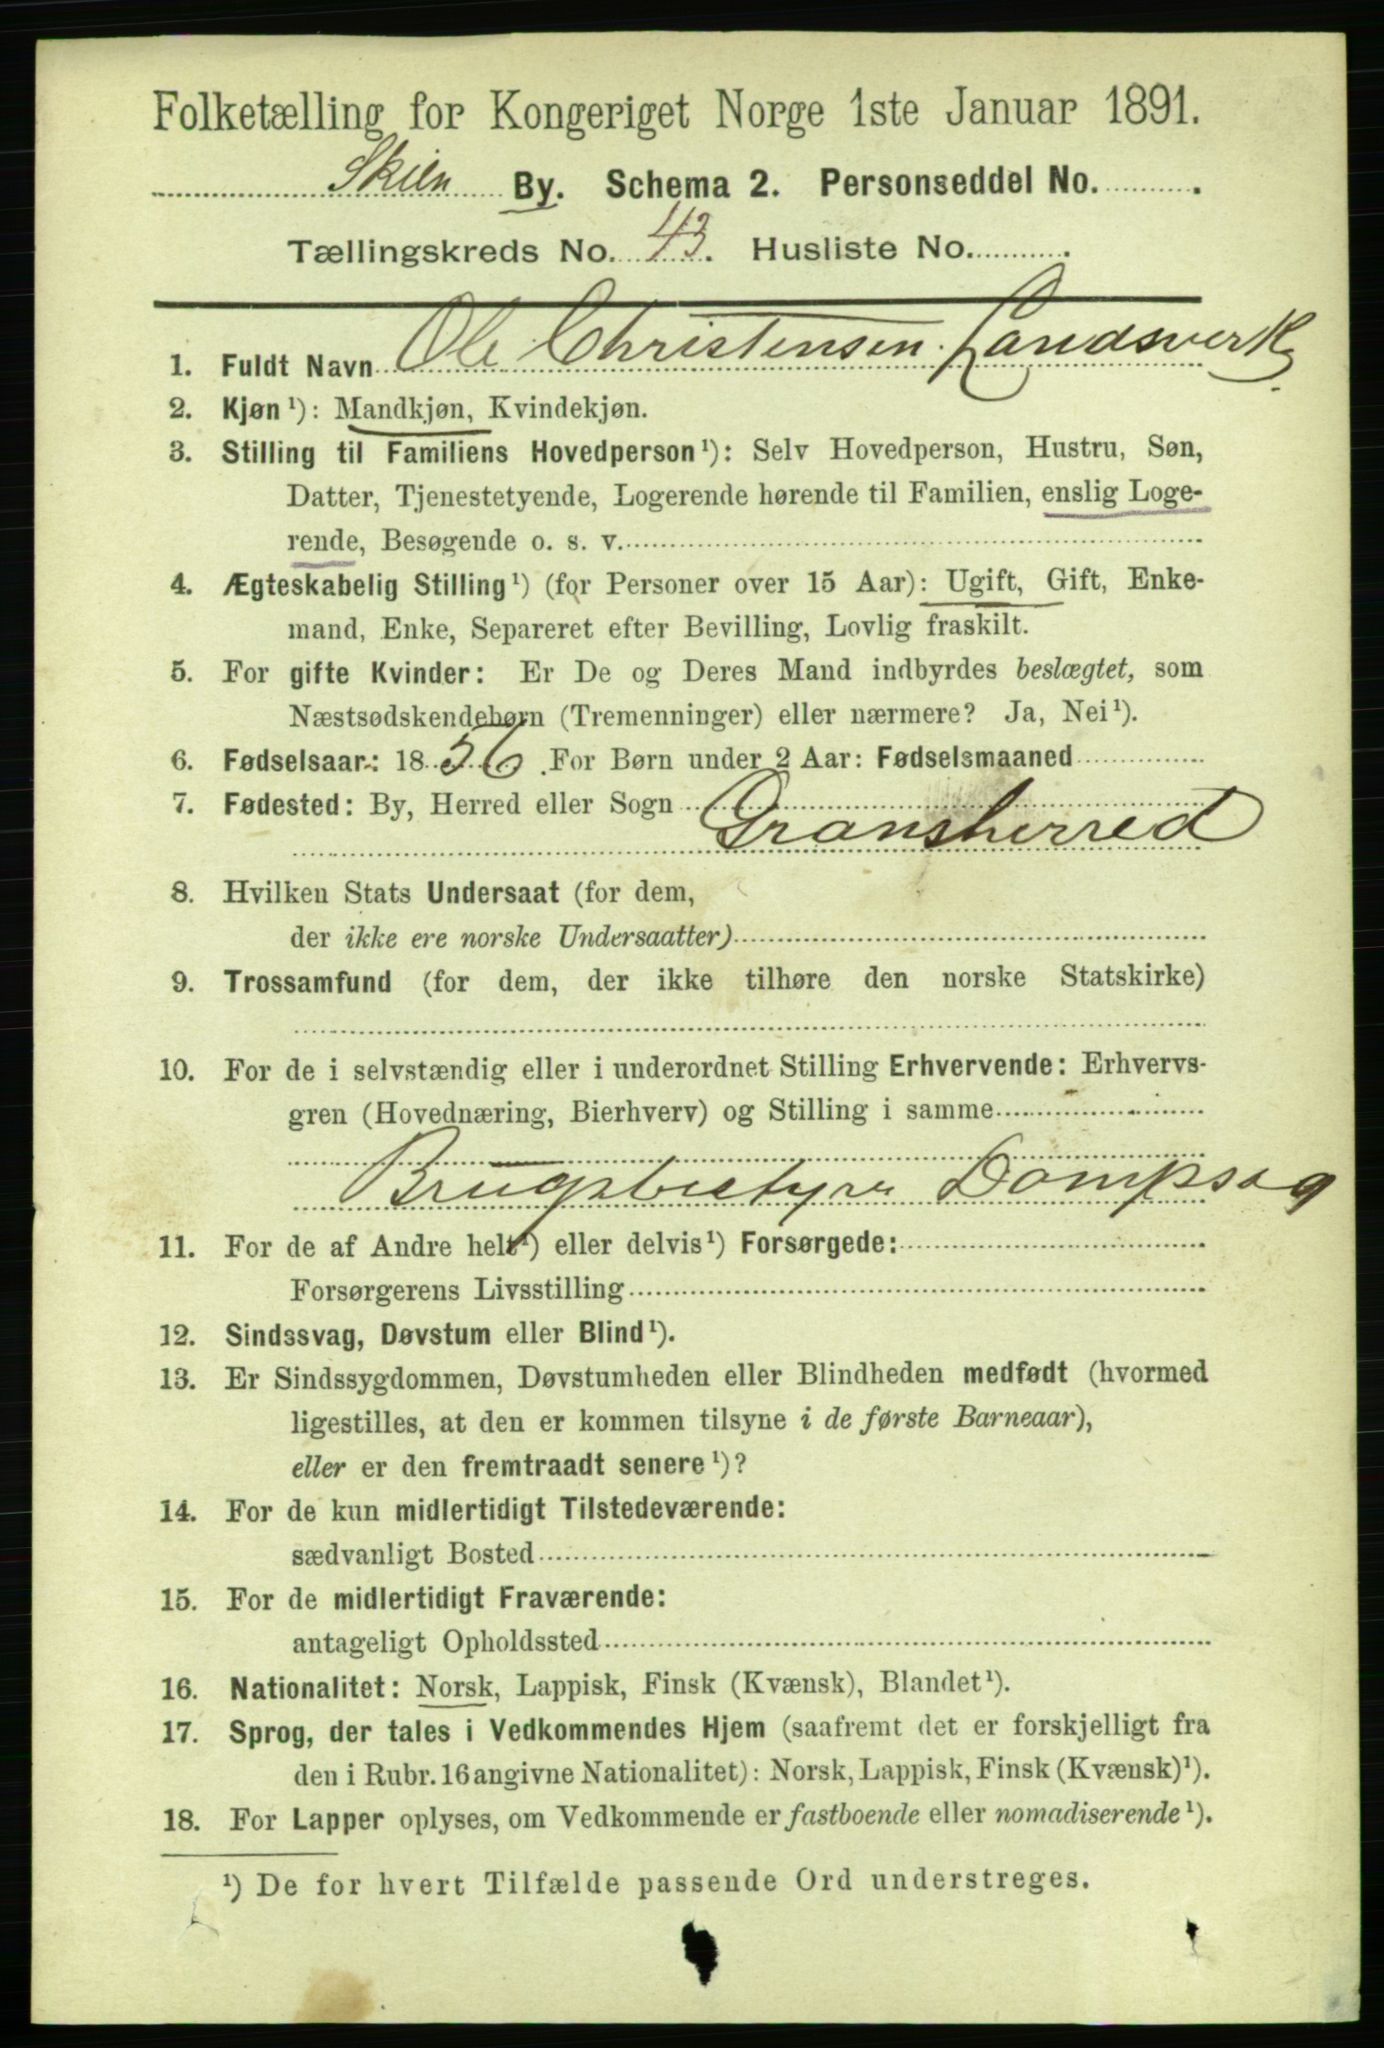 Folketælling for Kongeriget Norge 1ste Januar 1891.
Skien By. Schema 2. Personseddel No. .
Tællingskreds No. 43. Husliste No. .
1. Fuldt Navn Ole Christensen Landsverk
2. Kjøn¹): Mandkjøn, Kvindekjøn.
3. Stilling til Familiens Hovedperson¹): Selv Hovedperson, Hustru, Søn,
Datter, Tjenestetyende, Logerende hørende til Familien, enslig Loge-
rende, Besøgende o. s. v.
4. Ægteskabelig Stilling¹) (for Personer over 15 Aar): Ugift, Gift, Enke-
mand, Enke, Separeret efter Bevilling, Lovlig fraskilt.
5. For gifte Kvinder: Er De og Deres Mand indbyrdes beslægtet, som
Næstsødskendebørn (Tremenninger) eller nærmere? Ja, Nei¹).
6. Fødselsaar: 1856. For Børn under 2 Aar: Fødselsmaaned
7. Fødested: By, Herred eller Sogn
Gransherred
8. Hvilken Stats Undersaat (for dem,
der ikke ere norske Undersaatter)
9. Trossamfund (for dem, der ikke tilhøre den norske Statskirke)
10. For de i selvstændig eller i underordnet Stilling Erhvervende: Erhvervs-
gren (Hovednæring, Bierhverv) og Stilling i samme
Brugsbestyrer Dampsag
11. For de af Andre helt¹) eller delvis¹) Forsørgede:
Forsørgerens Livsstilling
12. Sindssvag, Døvstum eller Blind¹).
13. Er Sindssygdommen, Døvstumheden eller Blindheden medfødt (hvormed
ligestilles, at den er kommen tilsyne i de første Barneaar),
eller er den fremtraadt senere¹)?
14. For de kun midlertidigt Tilstedeværende:
sædvanligt Bosted
15. For de midlertidigt Fraværende:
antageligt Opholdssted
16. Nationalitet: Norsk, Lappisk, Finsk (Kvænsk), Blandet¹).
17. Sprog, der tales i Vedkommendes Hjem (saafremt det er forskjelligt fra
den i Rubr. 16 angivne Nationalitet): Norsk, Lappisk, Finsk (Kvænsk)¹).
18. For Lapper oplyses, om Vedkommende er fastboende eller nomadiserende¹).
¹) De for hvert Tilfælde passende Ord understreges.